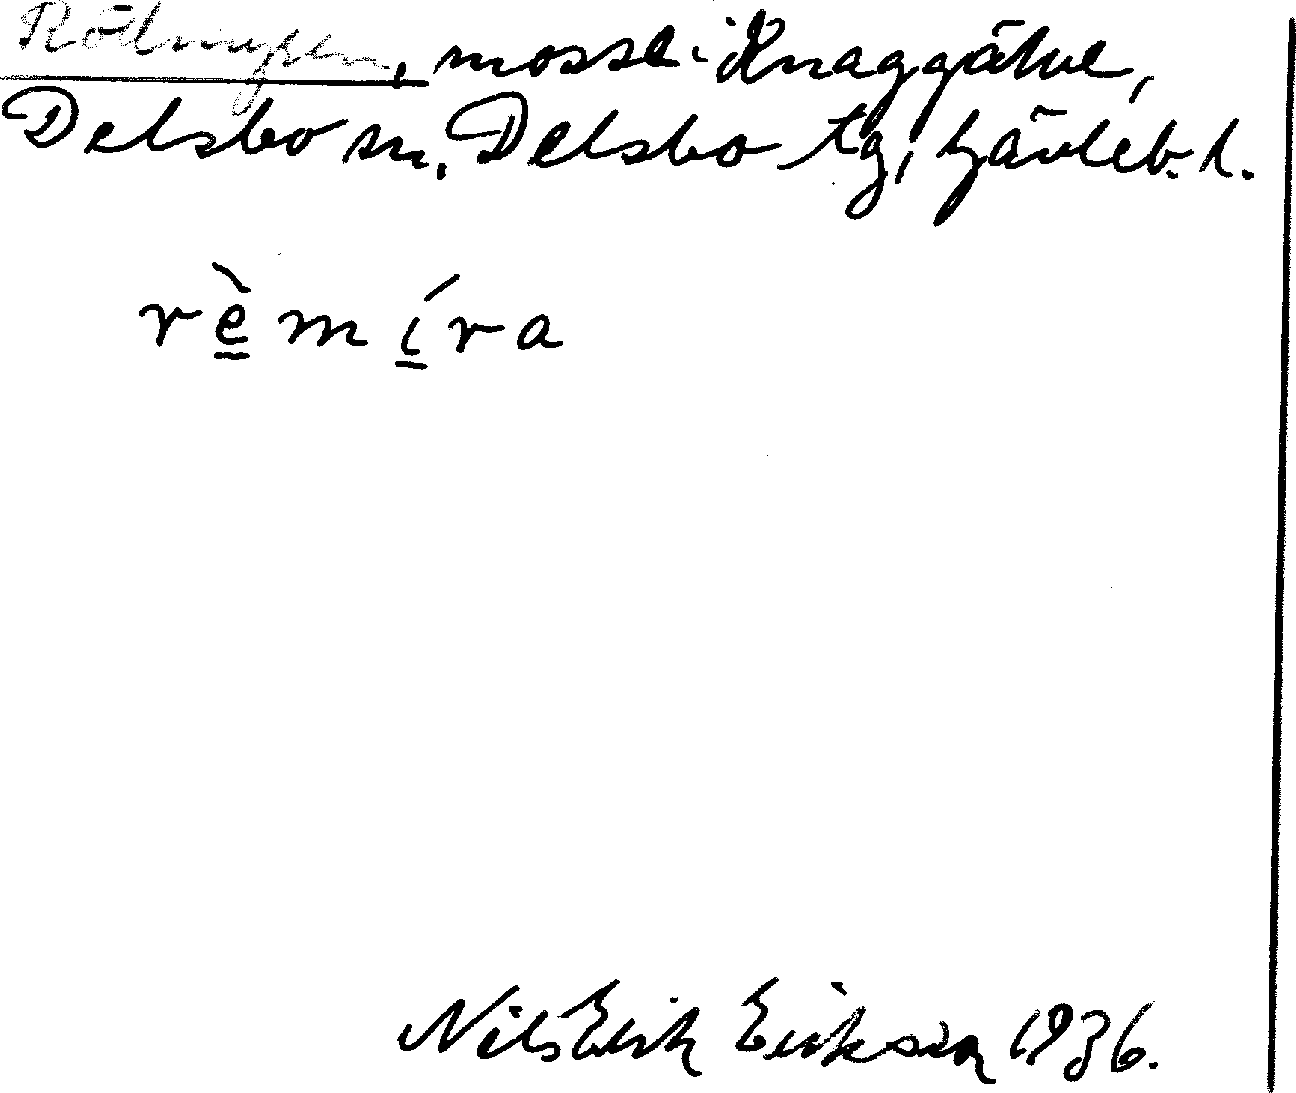 Rödmyren, mosse i Knaggälve,
Delsbo sn, Delsbo tg, Gävleb. l.
rèmíra
Nils Erik Erikson 1936.